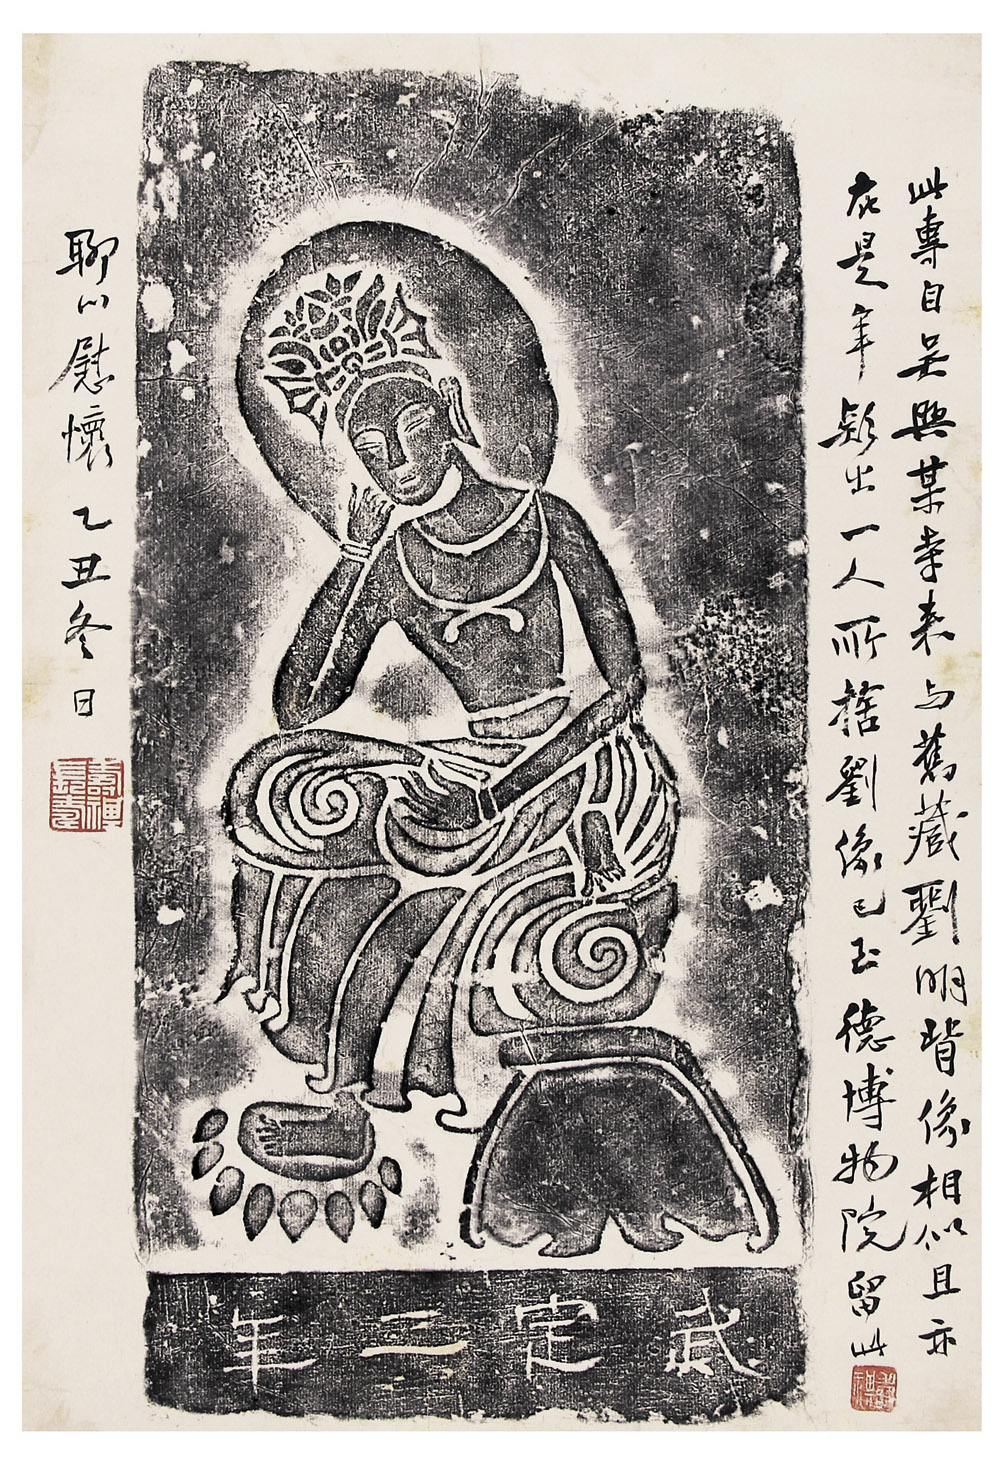 此專自吳興某寺来与舊藏劉明背像相似且亦
在是年疑出一人所捨劉像已至德博物院留此
武定二年
聊以慰懷乙丑冬日